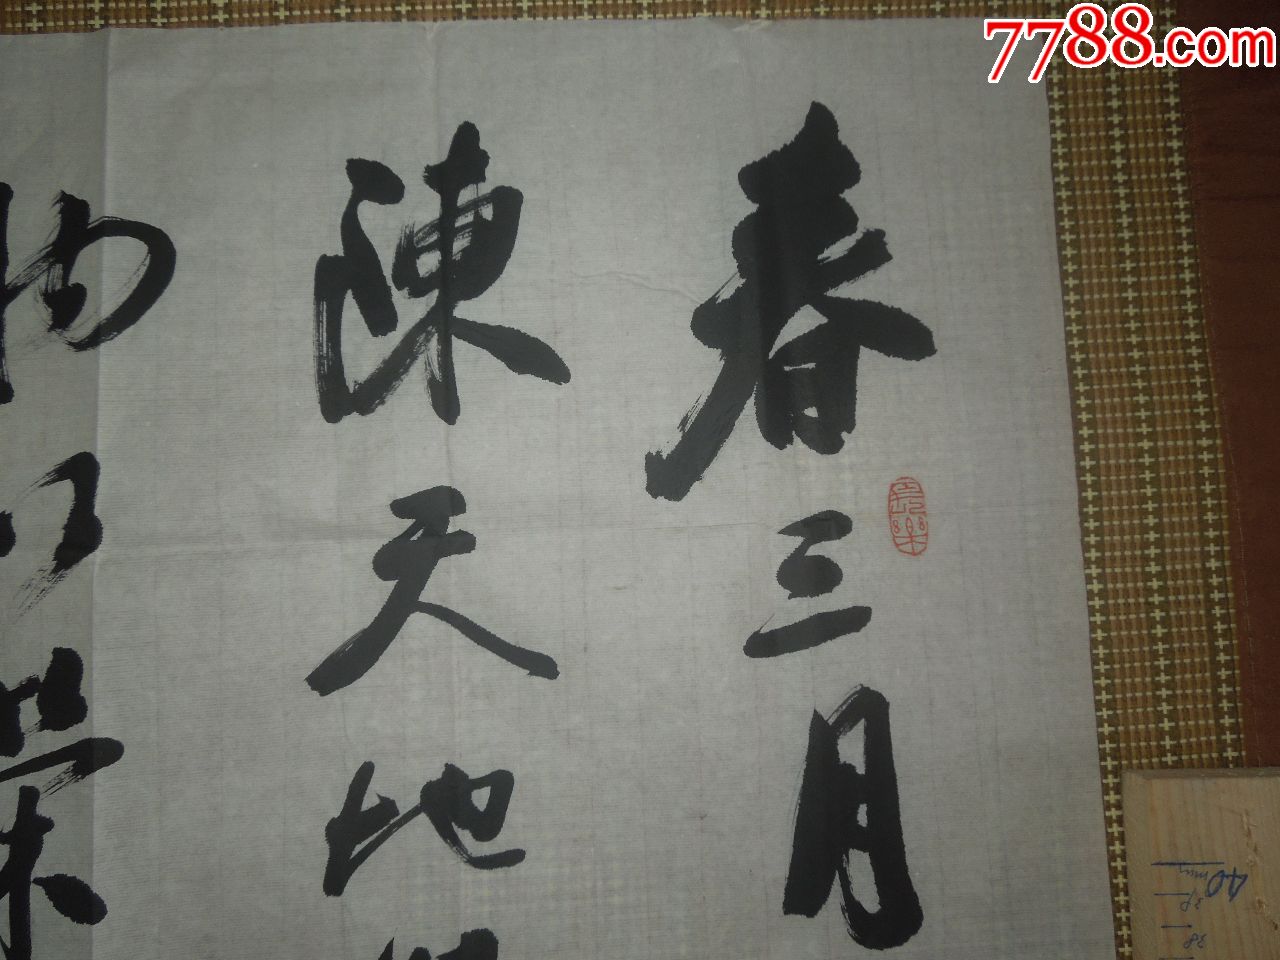 7788.com
春三月
陳天地
物以榮
40mm
38